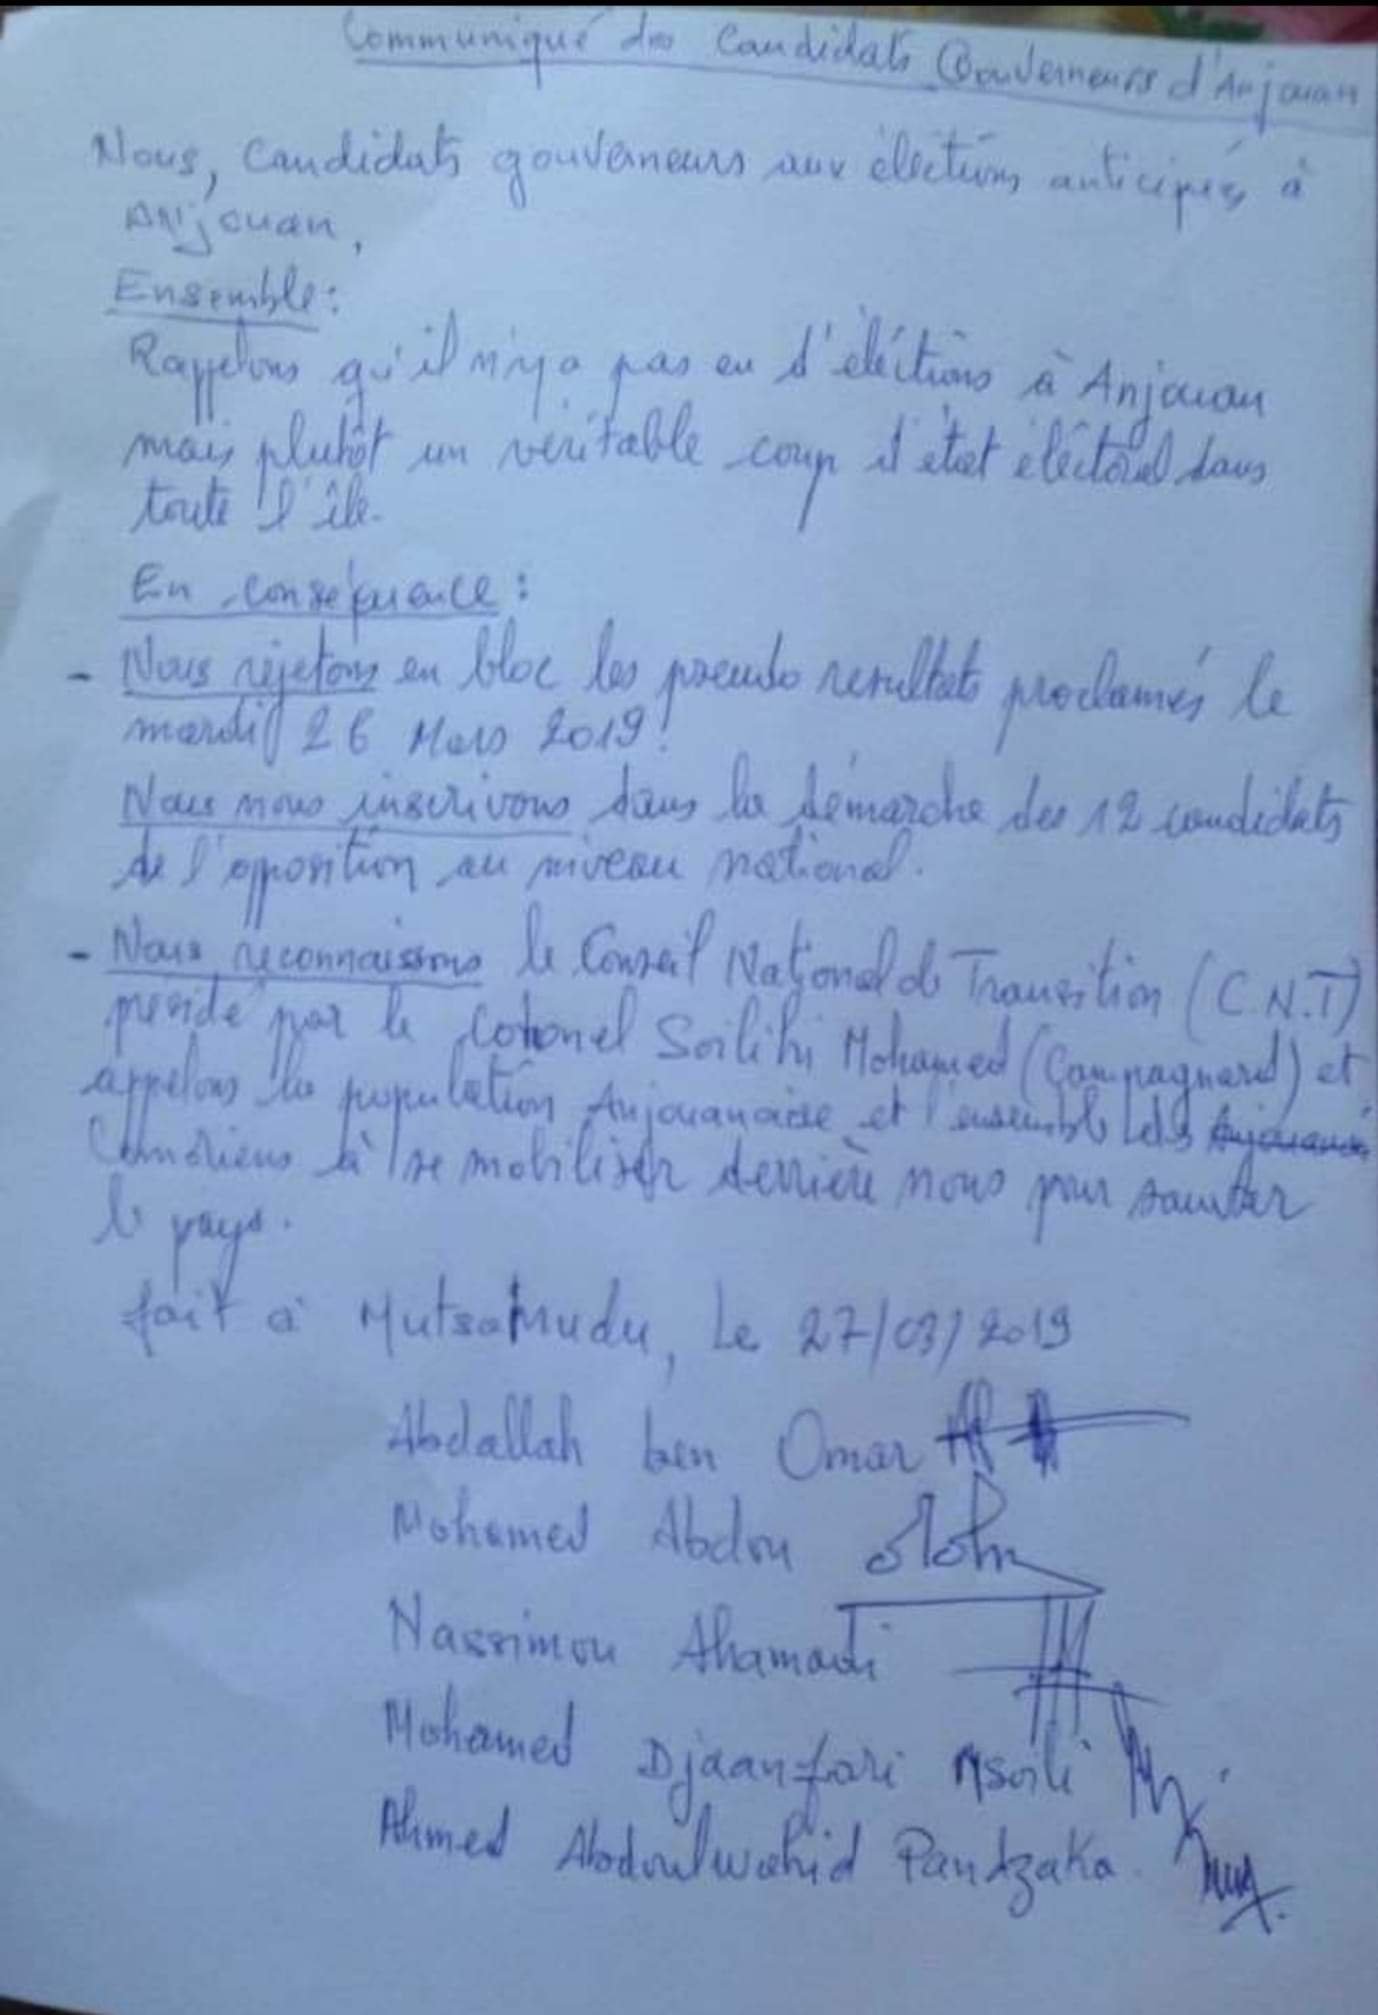 Communiqué des Candidats Gouverneurs d'Anjouan
Nous, Candidats gouverneurs aux élections anticipées à
Anjouan,
Ensemble:
Rappelons qu'il n'y a pas eu d'élections à Anjouan
mais plutôt un véritable coup d'état éléctoral dans
toute l'île.
En conséquence:
- Nous rejetons en bloc les pseudo resultats proclamés le
mardi 26 Mars 2019!
Nous nous inscrivons dans la démarche des 12 candidats
de l'opposition au niveau national.
- Nous reconnaissons le Conseil National de Transition (C.N.T)
présidé par le Colonel Soilihi Mohamed (Campagnard) et
appelons la population Anjouanaise et l'ensemble des
Comoriens à se mobiliser derrière nous pour sauver
le pays.
fait à Mutsamudu, Le 27/03/2019
Abdallah ben Omar
Mohamed Abdou
Nassimou Ahamadi
Mohamed Djaanfari Msoili
Ahmed Abdoulwahid Pandzaka.